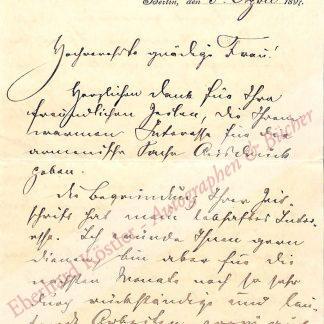 Berlin, den 5. April 189
Hochverehrte gnädige Frau!
Herzlichen Dank für Ihre
freundlichen Zeilen, die Ihrem
warmen Interesse für die
armenische Sache Ausdruck
geben.
Die Begründung Ihrer Zu-
schrift hat mein lebhaftes Inter-
esse. Ich würde Ihnen gern
dienen, bin aber für die
nächsten Monate noch so sehr
durch rückständige und lau-
Arbeiten
Eberhard Köstler - Autographen & Bücher